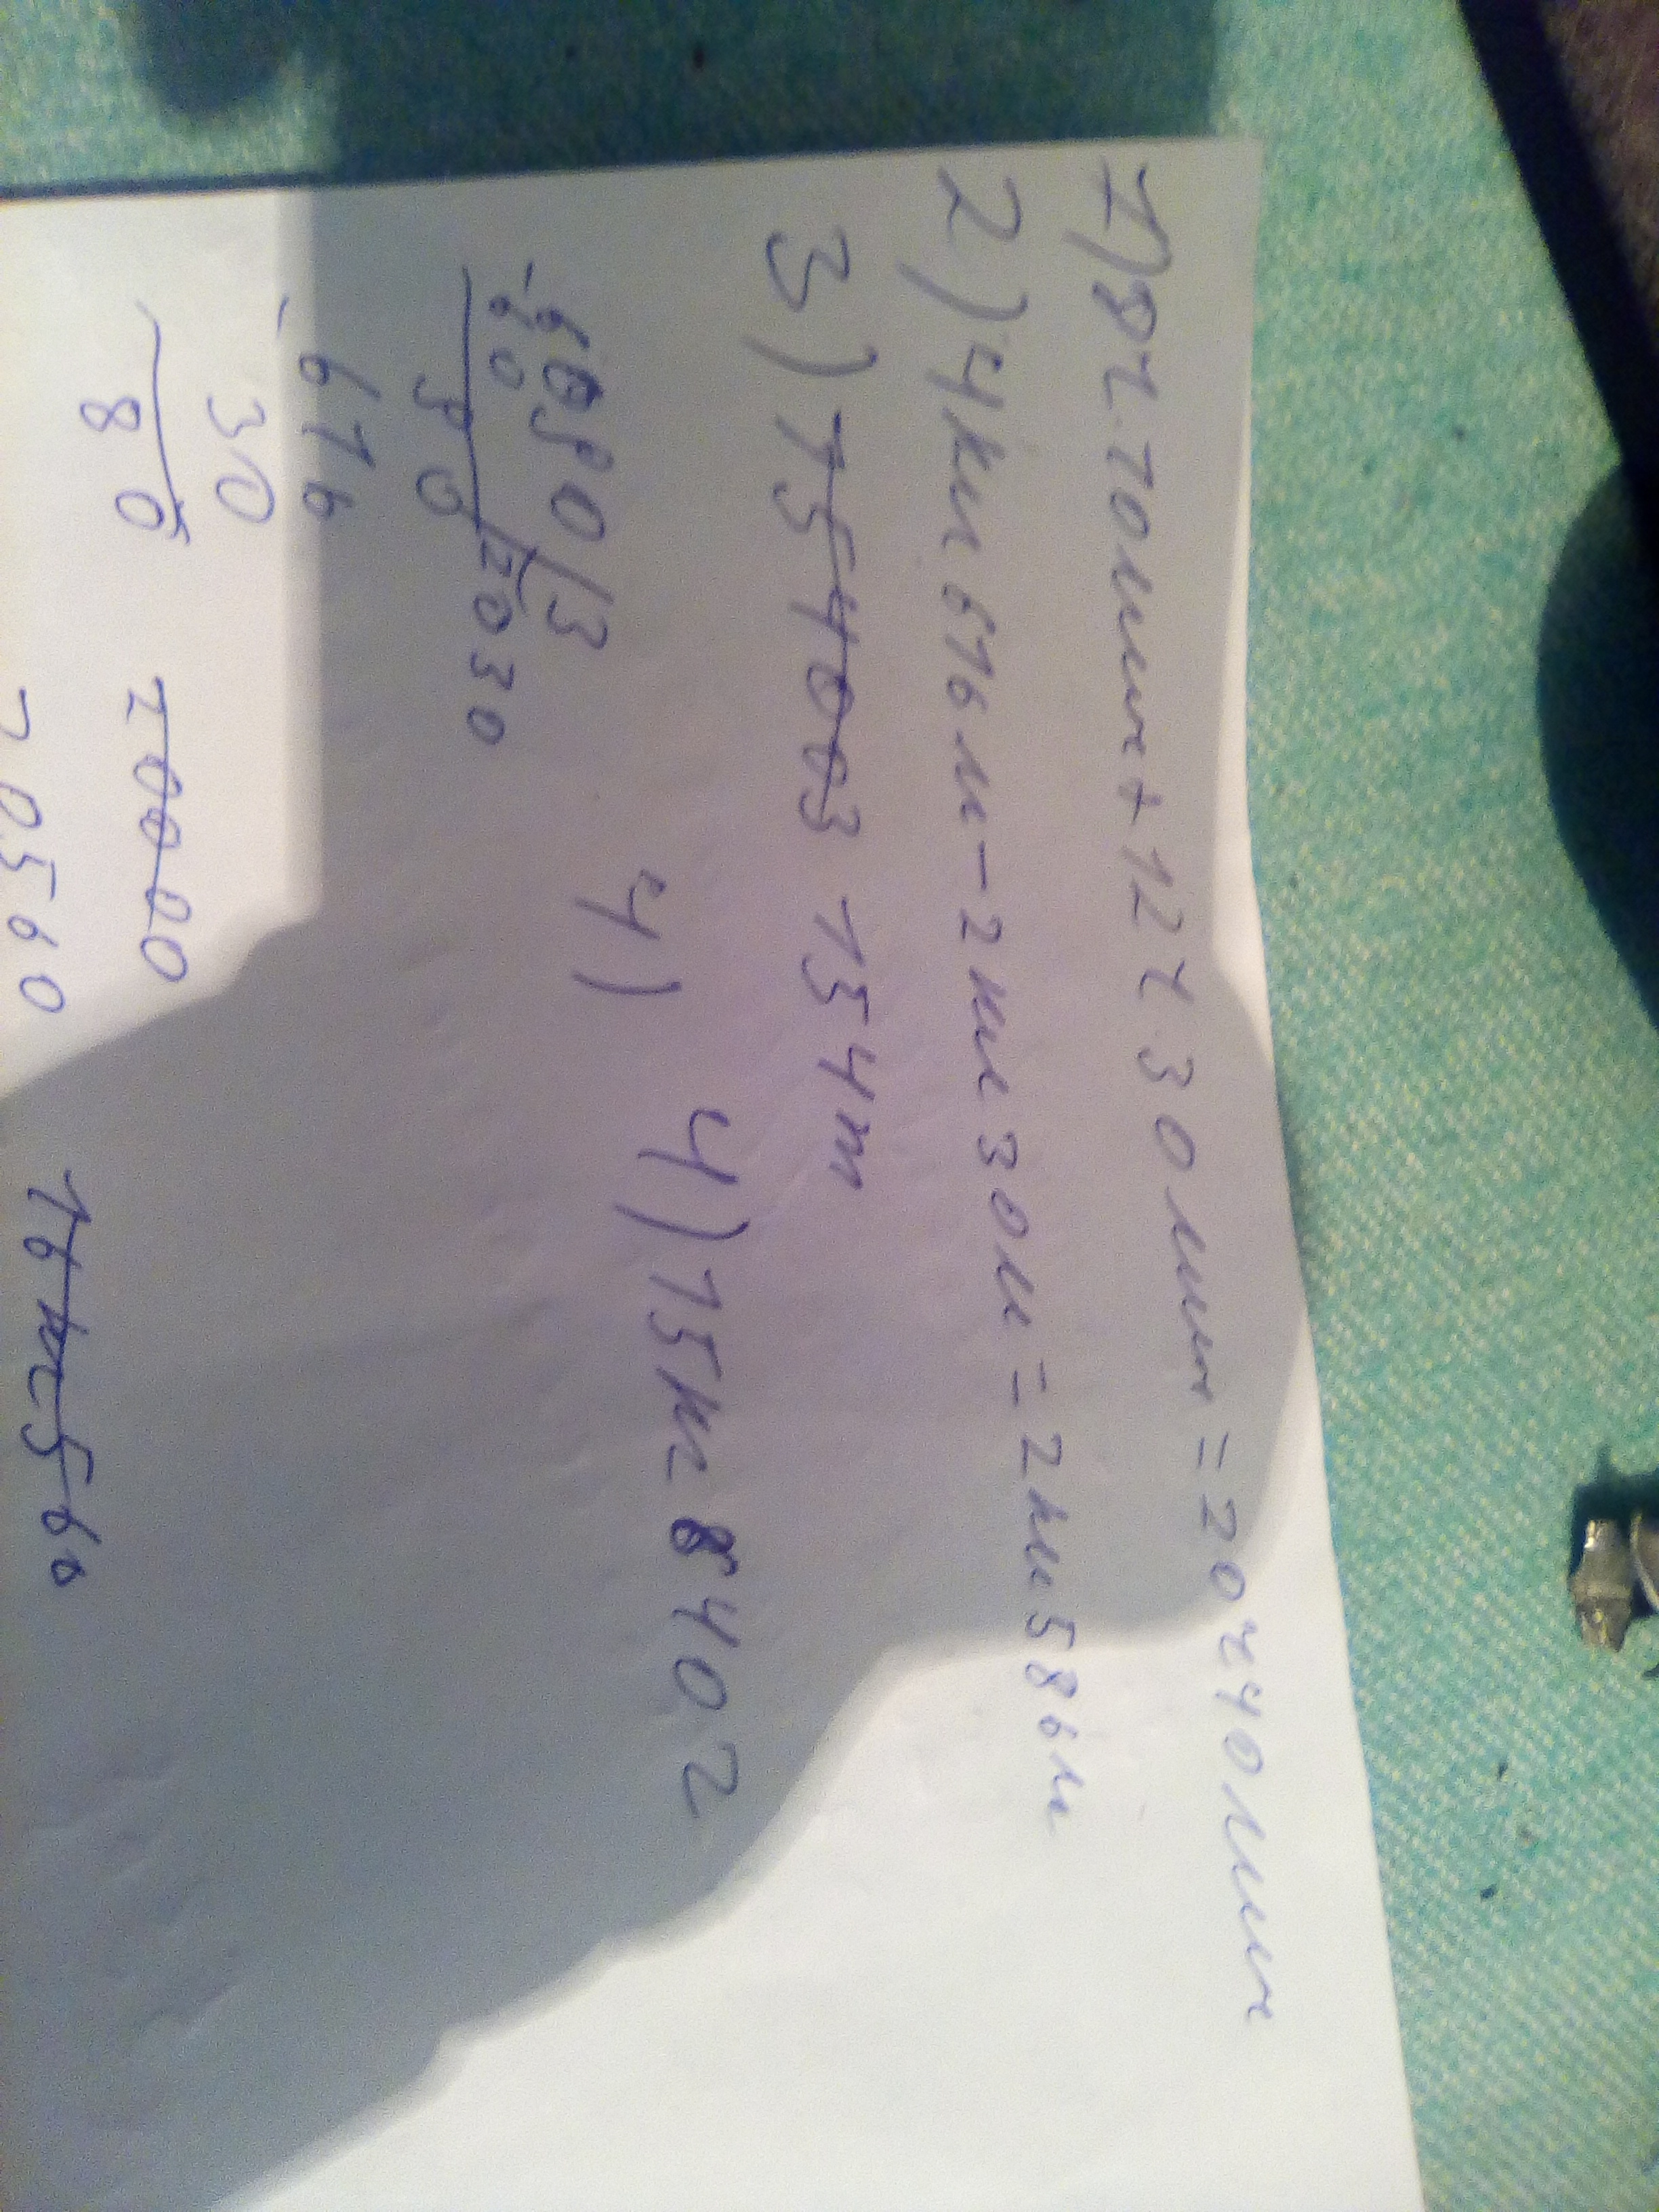 1) 8ч. 10мин + 12ч 30мин = 20ч 40мин
2) 4км 616м - 2км 30м = 2км 586м
3) 154003 154т
4) 15кг 8402
4)
6090 | 3
-60 2030
90
-616
30
86
10000
10560
16кг 560